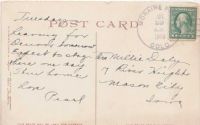 POST CARD
Tuesday
leaving for
Denver tomorrow
Expect to stay
there one day
then home
Love
Pearl
COLO.
Mrs Millie Daly
7 River Heights
Mason City
Iowa